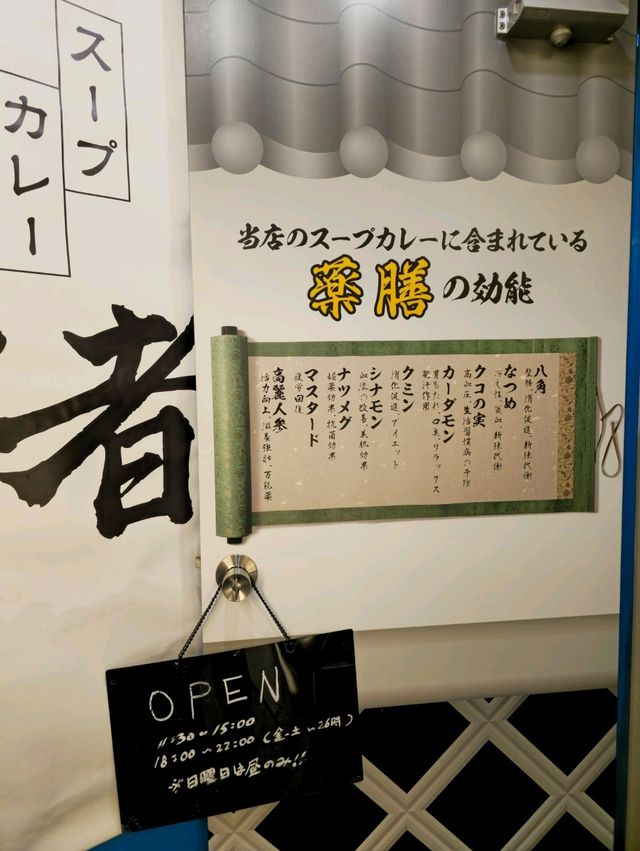 スープ
カレー
者
当店のスープカレーに含まれている
薬膳の効能
八角
整腸、消化促進、新陳代謝
なつめ
冷え性、貧血、新陳代謝
クコの実
高血圧、生活習慣病の予防
カーダモン
胃もたれ、口臭、リラックス
発汗作用
クミン
消化促進、ダイエット
シナモン
血流の改善、美肌効果
ナツメグ
媚薬効果、抗菌効果
マスタード
疲労回復
高麗人参
活力向上、滋養強壮、万能薬
OPEN
11:30~15:00
18:00~22:00(金土~26時)
※日曜日は昼のみ!!